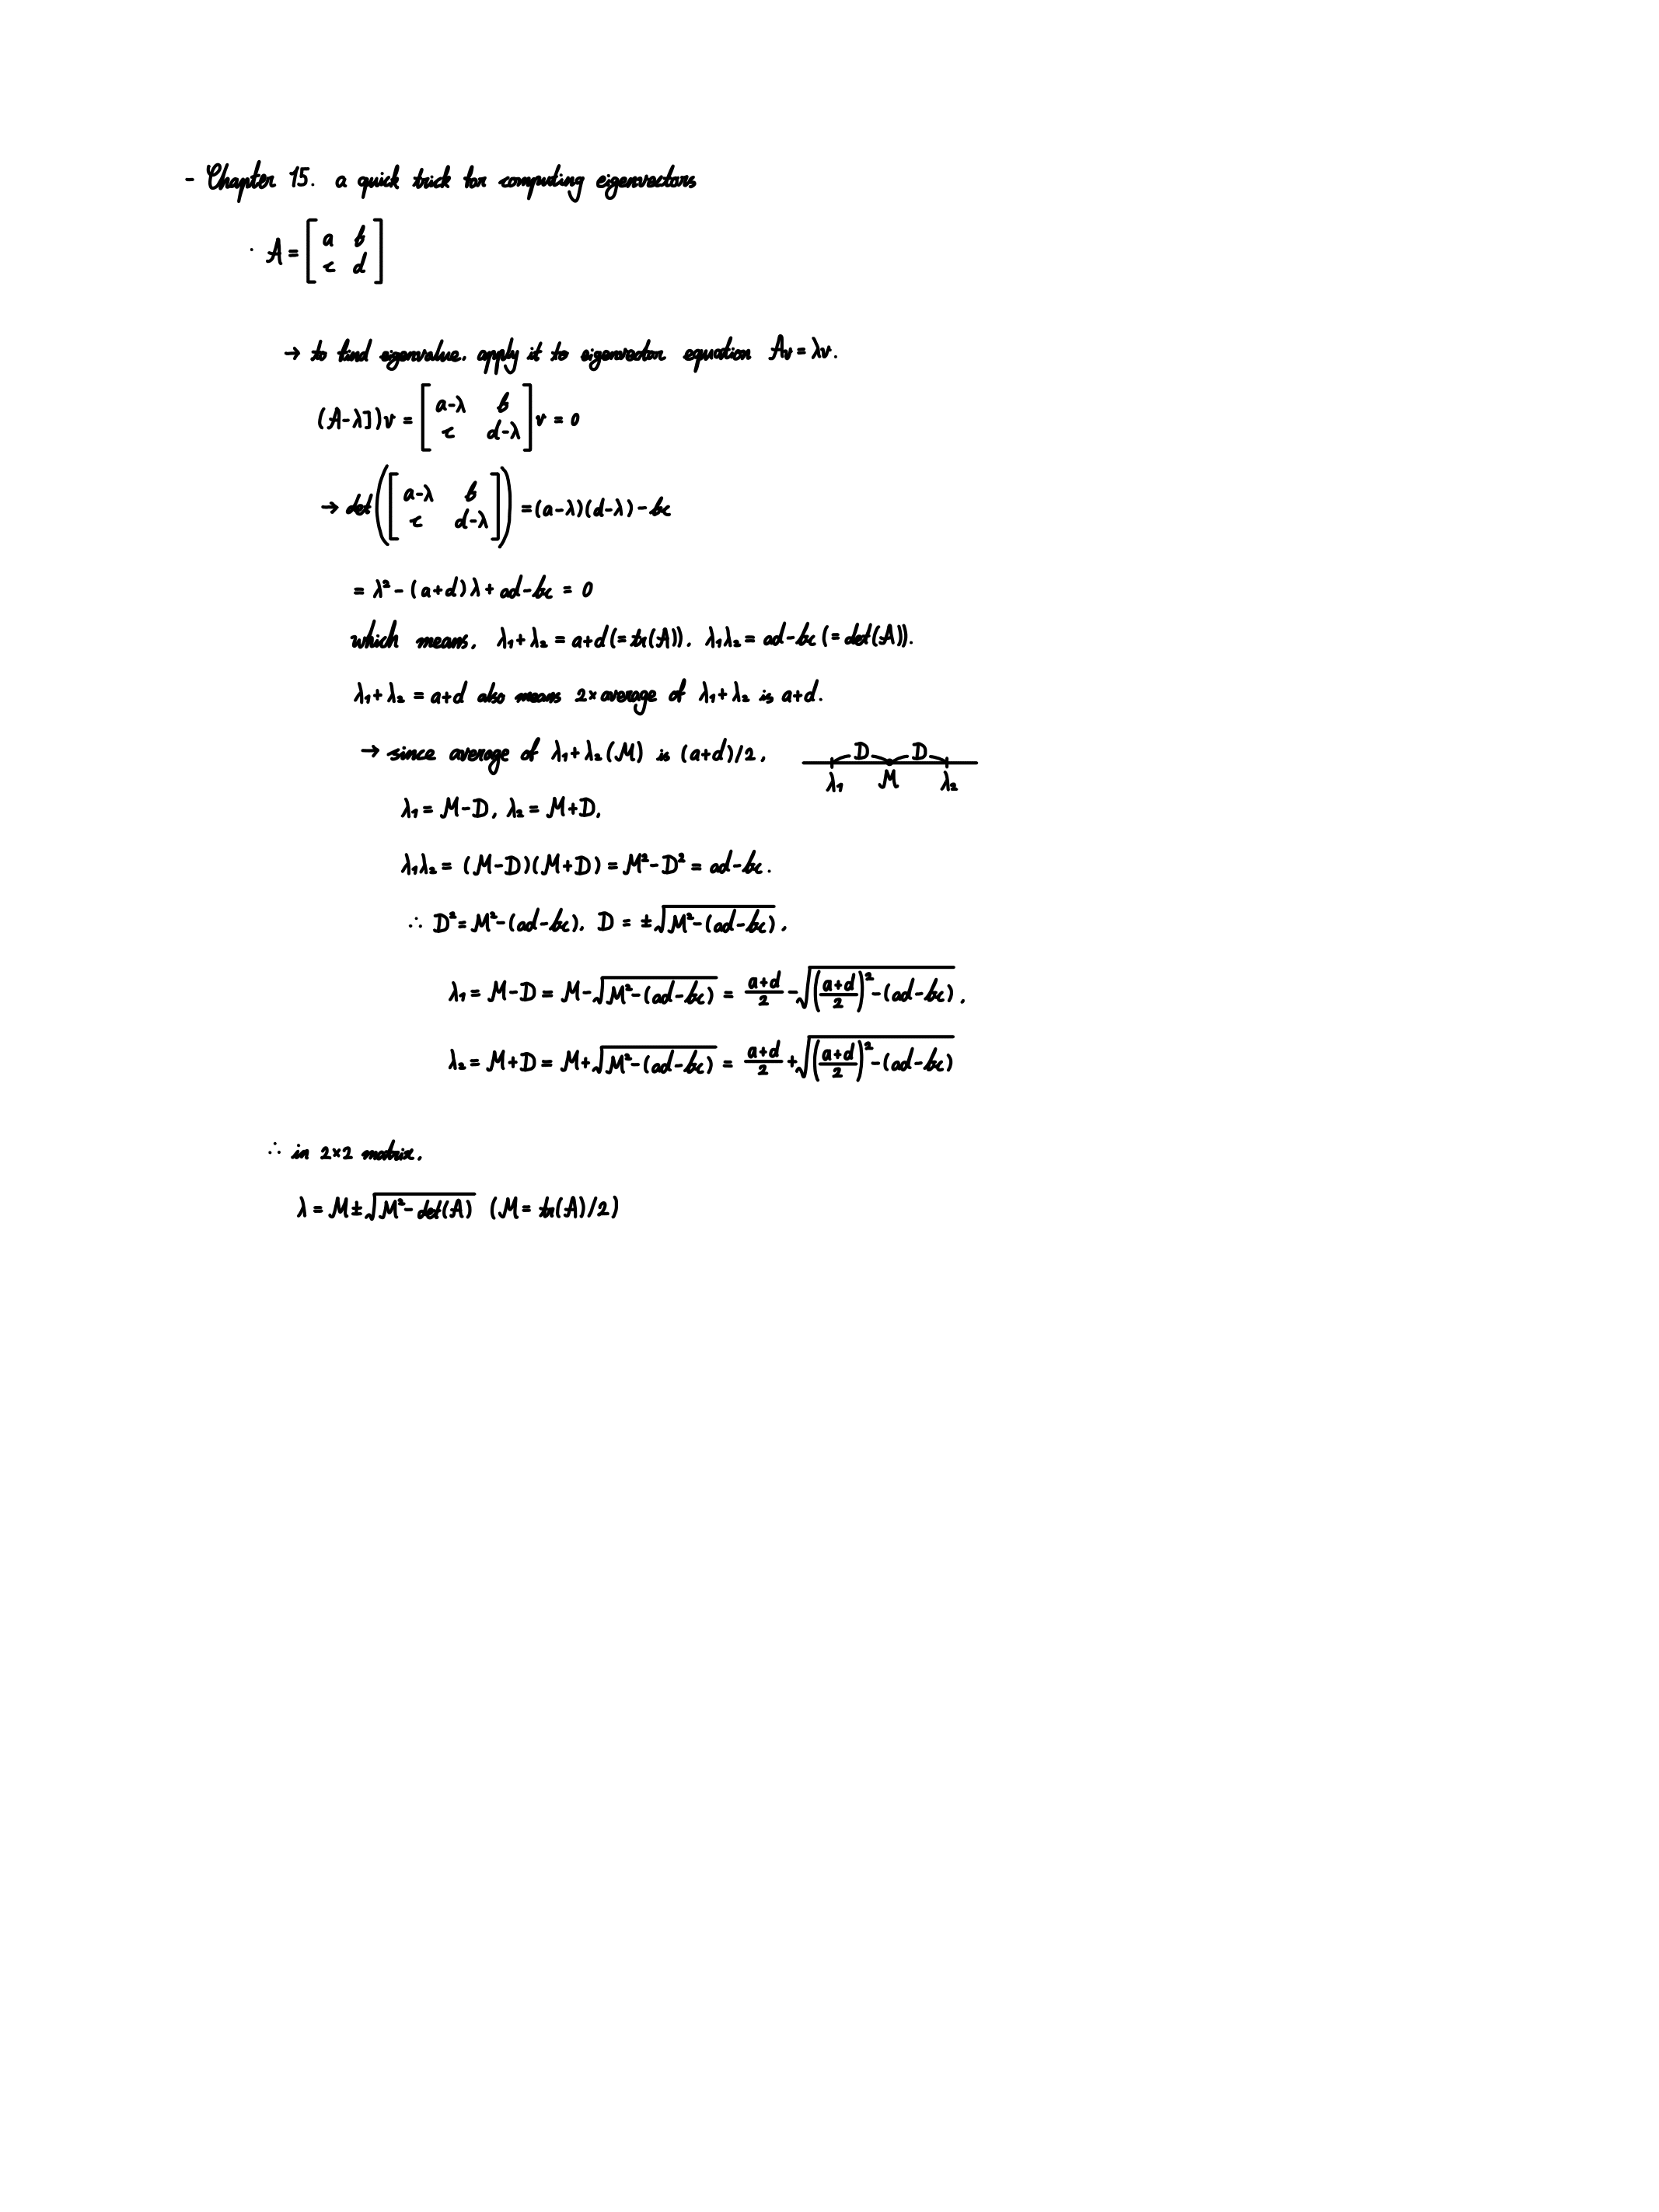 - Chapter 15. a quick trick for computing eigenvectors
· A = [ a b
c d ]
→ to find eigenvalue, apply it to eigenvector equation Av = λv.
(A-λI)v = [ a-λ b
c d-λ ] v = 0
→ det([ a-λ b
c d-λ ]) = (a-λ)(d-λ) - bc
= λ² - (a+d)λ + ad-bc = 0
which means, λ₁+λ₂ = a+d (= tr(A)), λ₁λ₂ = ad-bc (= det(A)).
λ₁+λ₂ = a+d also means 2×average of λ₁+λ₂ is a+d.
→ since average of λ₁+λ₂ (M) is (a+d)/2,
D D
λ₁ M λ₂
λ₁ = M-D, λ₂ = M+D,
λ₁λ₂ = (M-D)(M+D) = M²-D² = ad-bc.
∴ D² = M²-(ad-bc), D = ±√(M²-(ad-bc)),
λ₁ = M-D = M-√(M²-(ad-bc)) = (a+d)/2 - √(((a+d)/2)²-(ad-bc)),
λ₂ = M+D = M+√(M²-(ad-bc)) = (a+d)/2 + √(((a+d)/2)²-(ad-bc))
∴ in 2×2 matrix,
λ = M±√(M²-det(A)) (M = tr(A)/2)